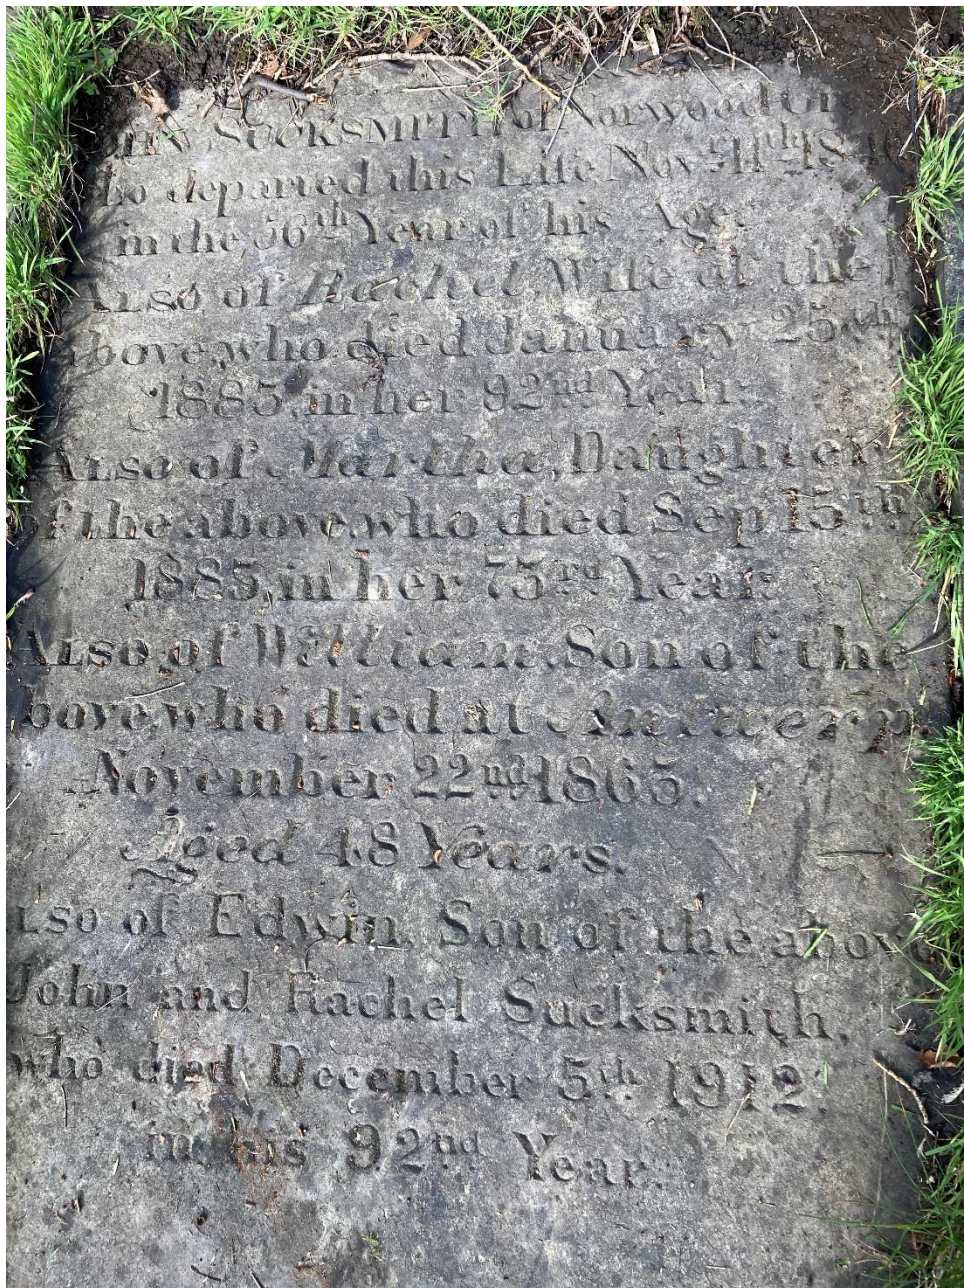 JOHN SUCKSMITH of Norwood Gr
who departed this Life, Novr. 11th 184
in the 56th Year of his Age.
ALSO of Rachel, Wife of the
above, who died January 25th
1885, in her 92nd Year.
ALSO of Martha, Daughter
of the above, who died Sep 15th
1885, in her 73rd Year.
ALSO, of William, Son of the
above, who died at Antwerp
November 22nd 1865.
Aged 48 Years.
ALSO of Edwin, Son of the above
John and Rachel Sucksmith,
who died December 5th 1912.
in his 92nd Year.